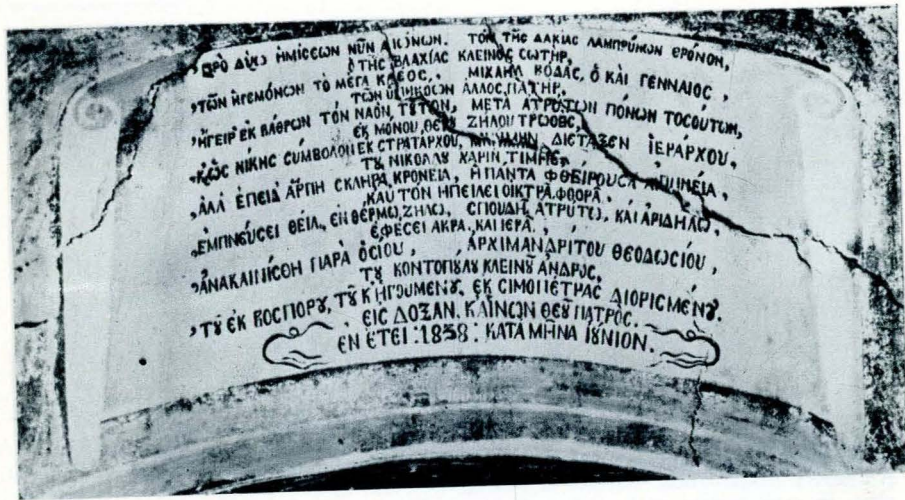 ΠΡΟ ΔΥΩ ΗΜΙΣΕΩΝ ΝΥΝ ΑΙΩΝΩΝ. ΤΩΝ ΤΗΣ ΔΑΚΙΑΣ ΛΑΜΠΡΥΝΩΝ ΘΡΟΝΟΝ,
Ο ΤΗΣ ΒΛΑΧΙΑΣ ΚΛΕΙΝΟΣ ΣΩΤΗΡ,
ΤΩΝ ΗΓΕΜΟΝΩΝ ΤΟ ΜΕΓΑ ΚΛΕΟΣ, ΜΙΧΑΗΛ ΒΟΔΑΣ, Ὁ ΚΑΙ ΓΕΝΝΑΙΟΣ,
ΤΩΝ ΥΠΗΚΟΩΝ ΑΛΛΟΣ ΠΑΤΗΡ,
ΗΓΕΙΡ' ΕΚ ΒΑΘΡΩΝ ΤΟΝ ΝΑΟΝ ΤΟΥΤΟΝ, ΜΕΤΑ ΑΤΡΥΤΩΝ ΠΟΝΩΝ ΤΟΣΟΥΤΩΝ,
ΕΚ ΜΟΝΟΥ ΘΕΙΟΥ ΖΗΛΟΥ
ΝΙΚΗΣ ΣΥΜΒΟΛΟΝ ΕΚ ΣΤΡΑΤΑΡΧΟΥ, ΔΙΕΤΑΞΕΝ ἹΕΡΑΡΧΟΥ,
ΤΟΥ ΝΙΚΟΛΑΟΥ ΧΑΡΙΝ ΤΙΜΗΣ,
ΑΛΛ ΕΠΕΙΔ ΑΡΠΗ ΣΚΛΗΡΑ ΚΡΟΝΕΙΑ, Η ΠΑΝΤΑ ΦΘΕΙΡΟΥΣΑ ΑΠΗΝΕΙΑ,
ΚΑΥΤΟΝ ΗΠΕΙΛΕΙ ΟΙΚΤΡΑ ΦΘΟΡΑ,
ΕΜΠΝΕΥΣΕΙ ΘΕΙΑ, ΕΝ ΘΕΡΜΩ ΖΗΛΩ, ΣΠΟΥΔΗ ΑΤΡΥΤΩ, ΚΑΙ ΑΡΙΔΗΛΩ,
ΕΦΕΣΕΙ ΑΚΡΑ, ΚΑΙ ΙΕΡΑ,
ΑΝΑΚΑΙΝΙΣΘΗ ΠΑΡΑ ὉΣΙΟΥ, ΑΡΧΙΜΑΝΔΡΙΤΟΥ ΘΕΟΔΩΣΙΟΥ,
ΤΟΥ ΚΟΝΤΟΠΟΥΛΟΥ ΚΛΕΙΝΟΥ ΑΝΔΡΟΣ,
ΤΟΥ ΕΚ ΒΟΣΠΟΡΟΥ, ΤΟΥ Κ ΗΓΟΥΜΕΝΟΥ, ΕΚ ΣΙΜΟΠΕΤΡΑΣ ΔΙΟΡΙΣΜΕΝΟΥ.
ΕΙΣ ΔΟΞΑΝ ΚΑΙΝΩΝ ΘΕΟΥ ΠΑΤΡΟΣ.
ΕΝ ΕΤΕΙ : 1838 : ΚΑΤΑ ΜΗΝΑ ΙΟΥΝΙΟΝ.